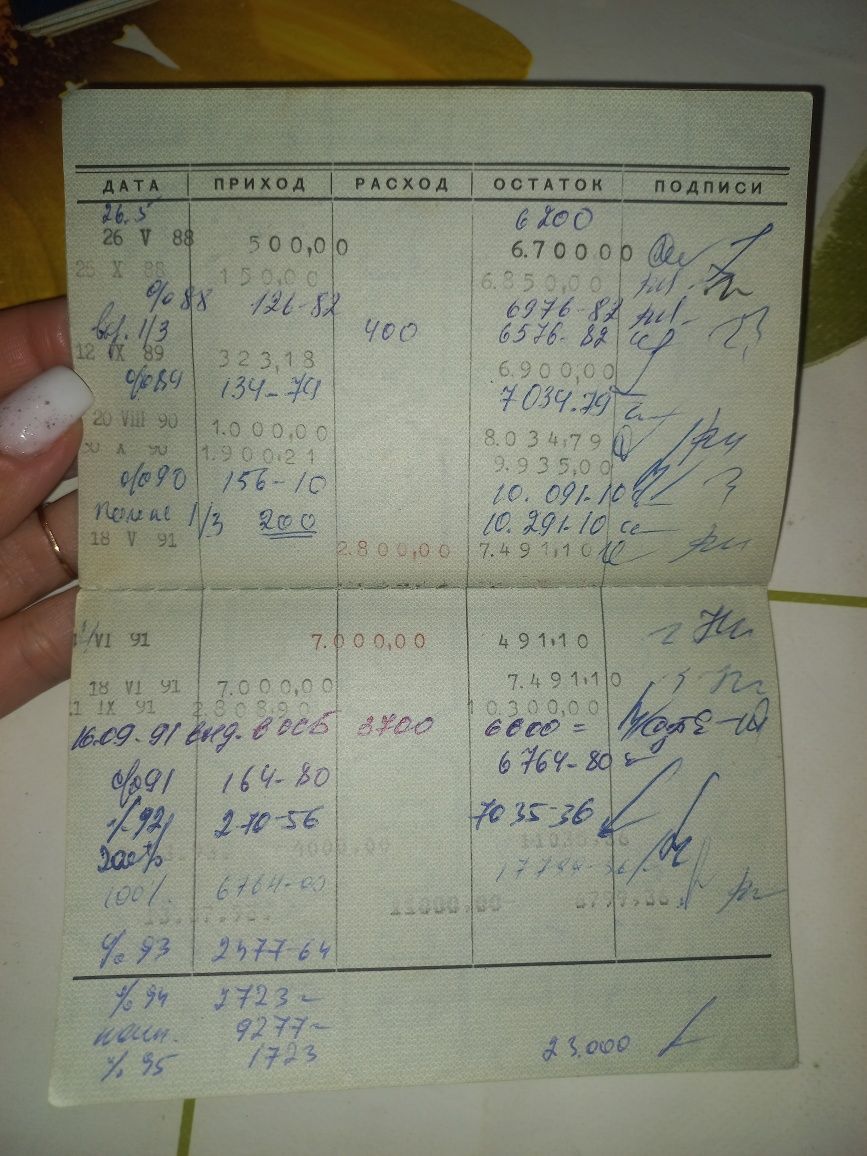 ДАТА ПРИХОД РАСХОД ОСТАТОК ПОДПИСИ
26.5 6200
26 V 88 500,00 6.70000
26 X 88 150,00 6.850,00
% 88 126-82 6976-82
1/3 400 6576-82
12 IX 89 323,18 6.900,00
% 89 134-79 7034.79
20 VIII 90 1.000,00 8.034,79
X 90 1.900,21 9.935,00
% 90 156-10 10.091-10
1/3 200 10.291-10
18 V 91 2.800,00 7.491,10
VI 91 7.000,00 491,10
18 VI 91 7.000,00 7.491,10
IX 91 2.808,90 10.300,00
16.09.91 3700 6600=
% 91 164-80 6764-80
% 92 270-56 7035-36
4000.00
100% 6764-00
11000.00 6799.36
% 93 2477-64
% 94 1723-
9277-
% 95 1723 23.000